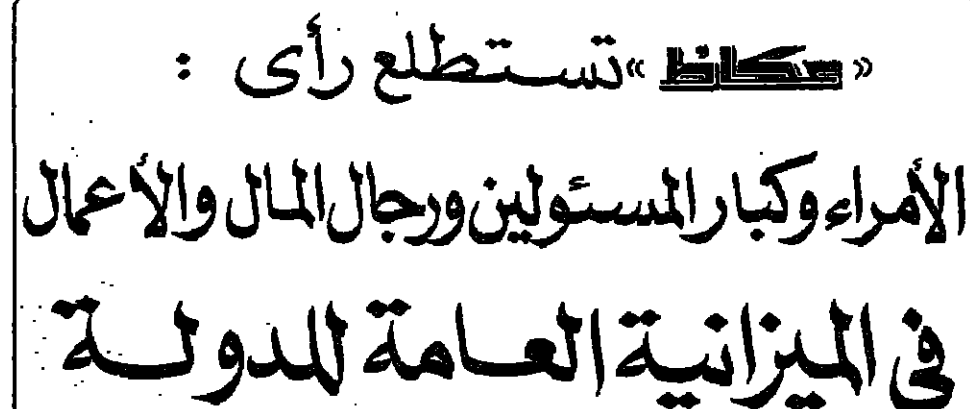 «عكاظ» تستطلع رأى :
الأمراء وكبار المسئولين ورجال المال والأعمال
فى الميزانية العامة للدولة